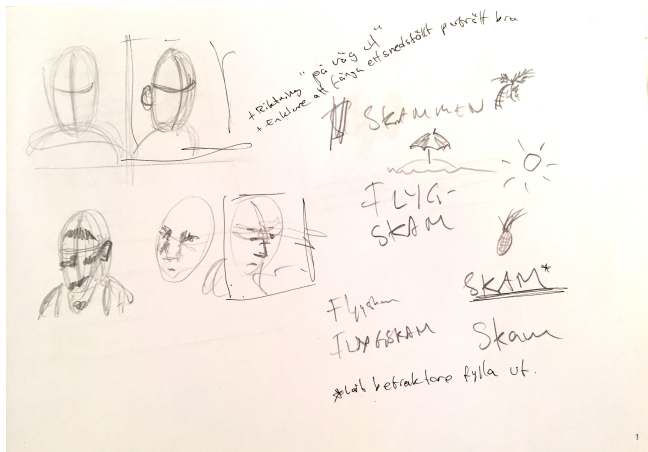 + Riktning "på väg ut"
+ Enklare att fånga ett snedställt porträtt bra
SKAMMEN
FLYG-
SKAM
SKAM*
Flygskam
FLYGSKAM
Skam
*Låt betraktare fylla ut.
1